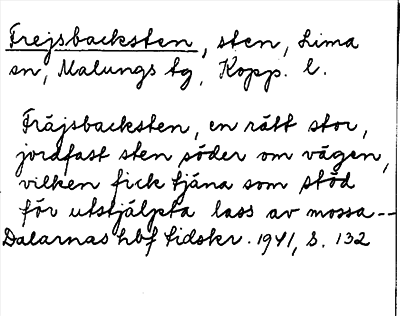 Frejsbacksten, sten, Lima
sn, Malungs tg, Kopp. l.
Fräjsbacksten, en rätt stor,
jordfast sten söder om vägen,
vilken fick tjäna som stöd
för utstjälpta lass av mossa --
Dalarnas hbf tidskr. 1941, s. 132